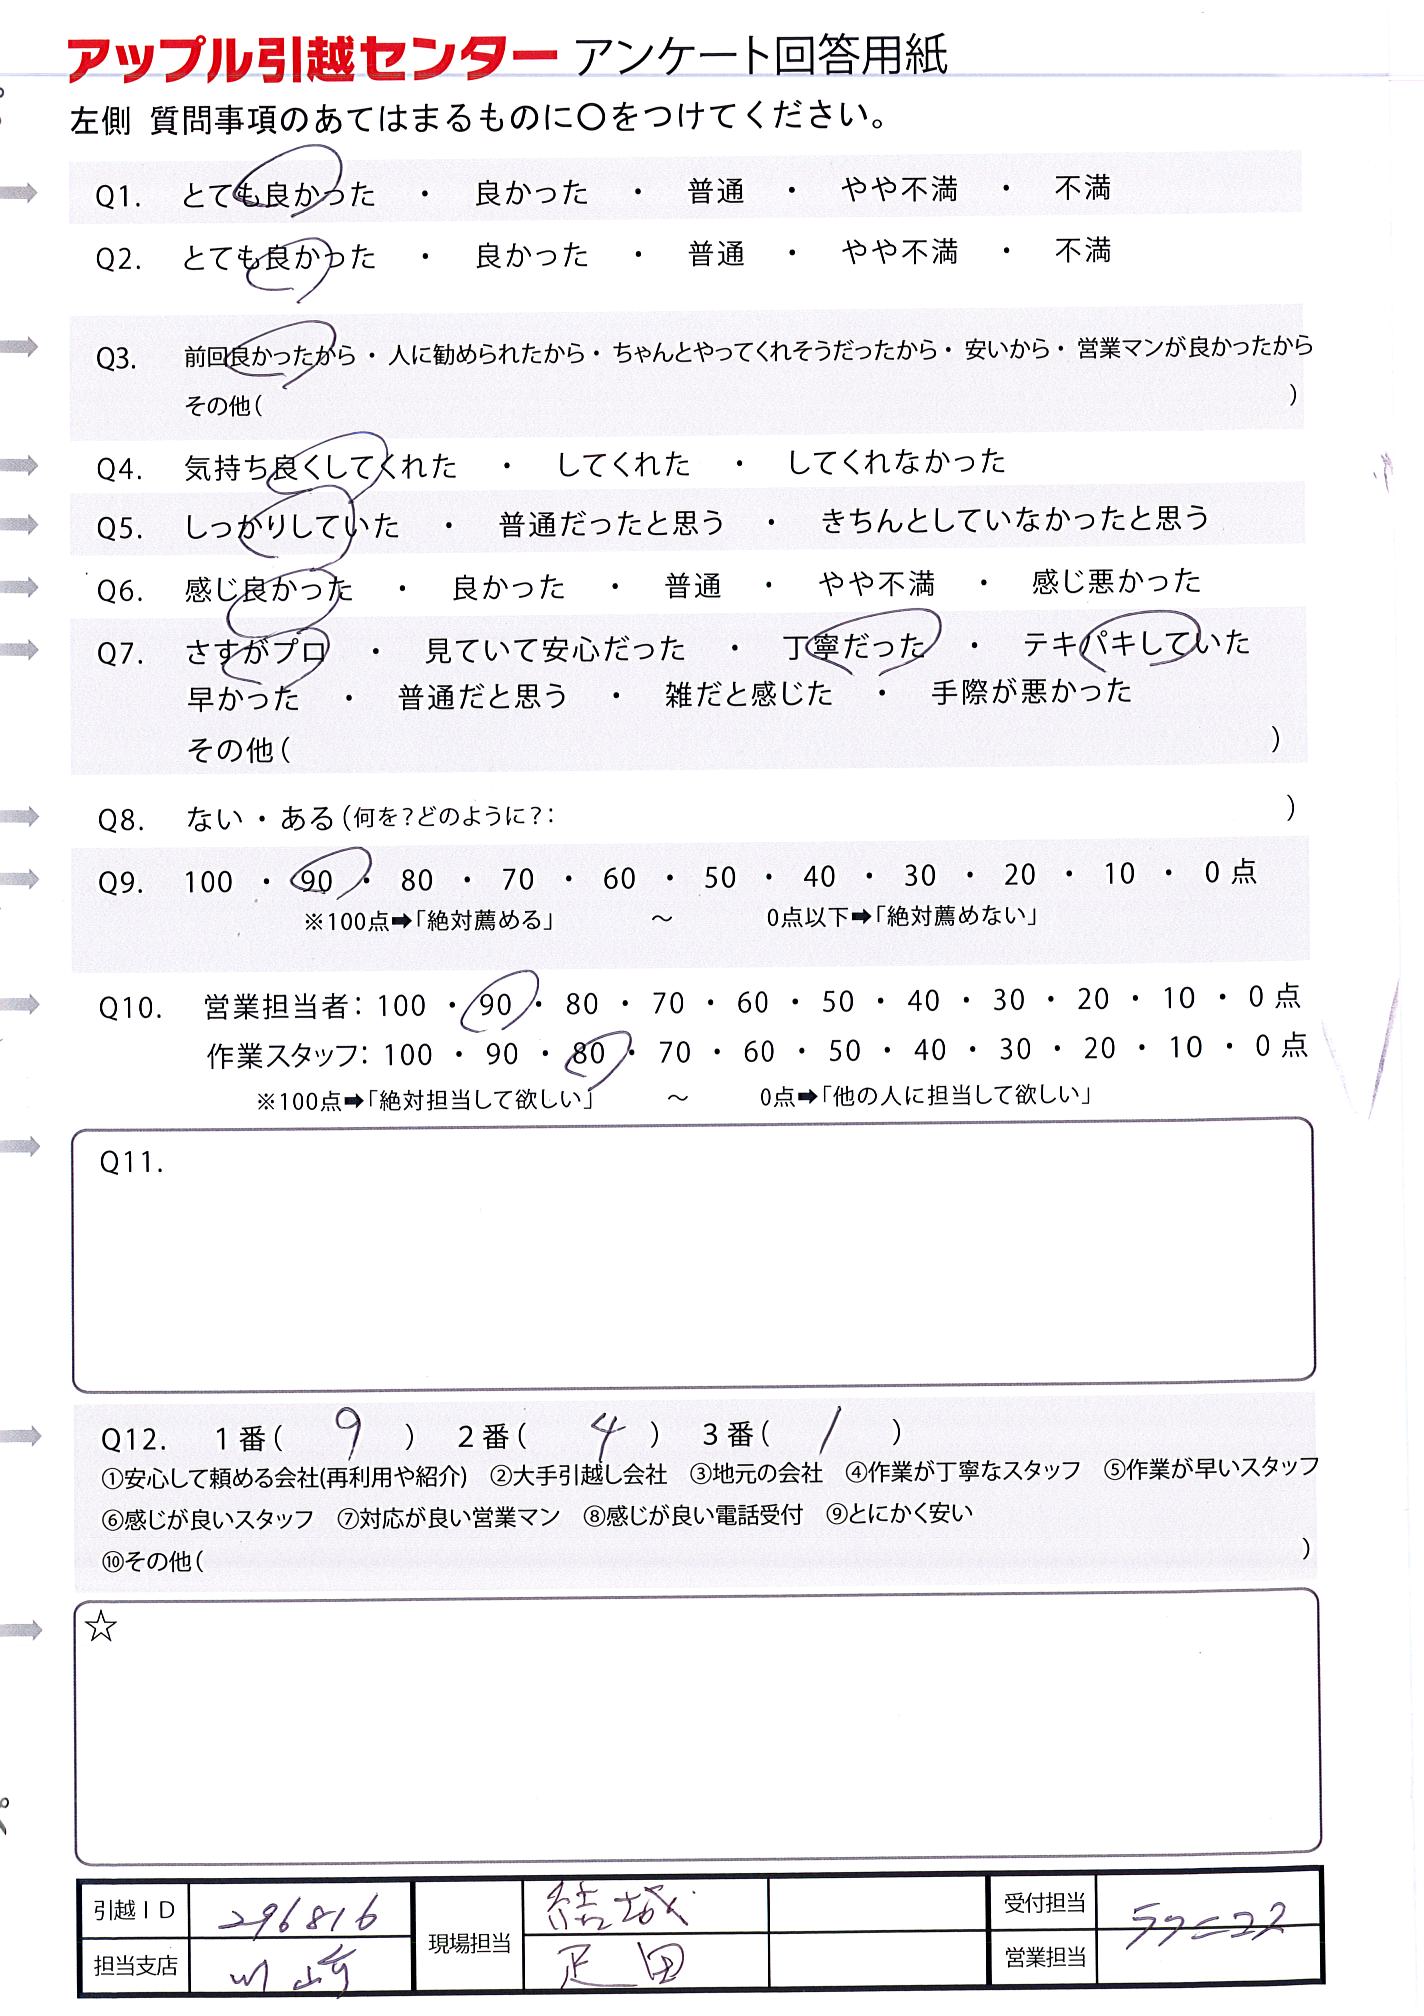 アップル引越センター アンケート回答用紙
左側 質問事項のあてはまるものに○をつけてください。
Q1. とても良かった ・ 良かった ・ 普通 ・ やや不満 ・ 不満
Q2. とても良かった ・ 良かった ・ 普通 ・ やや不満 ・ 不満
Q3. 前回良かったから・人に勧められたから・ちゃんとやってくれそうだったから・安いから・営業マンが良かったから
その他( )
Q4. 気持ち良くしてくれた ・ してくれた ・ してくれなかった
Q5. しっかりしていた ・ 普通だったと思う ・ きちんとしていなかったと思う
Q6. 感じ良かった ・ 良かった ・ 普通 ・ やや不満 ・ 感じ悪かった
Q7. さすがプロ ・ 見ていて安心だった ・ 丁寧だった ・ テキパキしていた
早かった ・ 普通だと思う ・ 雑だと感じた ・ 手際が悪かった
その他( )
Q8. ない・ある(何を?どのように?: )
Q9. 100 ・ 90 ・ 80 ・ 70 ・ 60 ・ 50 ・ 40 ・ 30 ・ 20 ・ 10 ・ 0点
※100点➡「絶対薦める」 ～ 0点以下➡「絶対薦めない」
Q10. 営業担当者: 100 ・ 90 ・ 80 ・ 70 ・ 60 ・ 50 ・ 40 ・ 30 ・ 20 ・ 10 ・ 0点
作業スタッフ: 100 ・ 90 ・ 80 ・ 70 ・ 60 ・ 50 ・ 40 ・ 30 ・ 20 ・ 10 ・ 0点
※100点➡「絶対担当して欲しい」 ～ 0点➡「他の人に担当して欲しい」
Q11.
Q12. 1番( 9 ) 2番( 4 ) 3番( 1 )
①安心して頼める会社(再利用や紹介) ②大手引越し会社 ③地元の会社 ④作業が丁寧なスタッフ ⑤作業が早いスタッフ
⑥感じが良いスタッフ ⑦対応が良い営業マン ⑧感じが良い電話受付 ⑨とにかく安い
⑩その他( )
☆
引越ID 296816 現場担当 結城 受付担当
担当支店 川崎 足田 営業担当